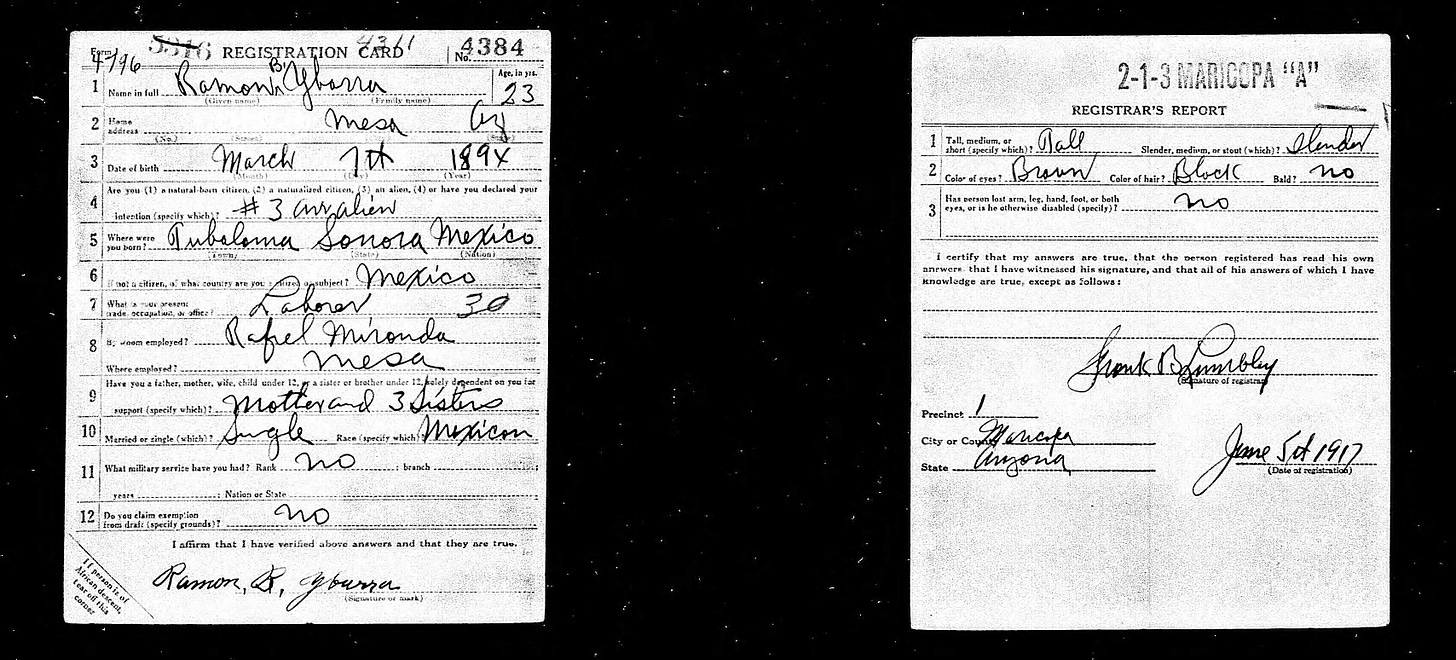 Form 1 5316 REGISTRATION CARD 4311 No. 4384
4796
1 Name in full Ramon B. Ybarra Age, in yrs. 23
(Given name) (Family name)
2 Home address Mesa Az
(No.) (Street) (State)
3 Date of birth March 7th 1894
(Month) (Day) (Year)
Are you (1) a natural-born citizen, (2) a naturalized citizen, (3) an alien, (4) or have you declared your
4 intention (specify which)? #3 an alien
5 Where were you born? Tubaloma Sonora Mexico
(Town) (State) (Nation)
6 If not a citizen, of what country are you a citizen or subject? Mexico
7 What is your present trade, occupation, or office? Laborer 30
8 By whom employed? Rafiel Mironda
Where employed? Mesa
Have you a father, mother, wife, child under 12, or a sister or brother under 12, solely dependent on you for
9 support (specify which)? Mother and 3 Sisters
10 Married or single (which)? Single Race (specify which)? Mexican
11 What military service have you had? Rank no ; branch
years ; Nation or State
12 Do you claim exemption from draft (specify grounds)? no
I affirm that I have verified above answers and that they are true.
Ramon, R, Ybarra
(Signature or mark)
If person is of
African descent,
tear off this
corner
2-1-3 MARICOPA "A"
REGISTRAR'S REPORT
1 Tall, medium, or short (specify which)? Tall Slender, medium, or stout (which)? Slender
2 Color of eyes? Brown Color of hair? Black Bald? no
3 Has person lost arm, leg, hand, foot, or both eyes, or is he otherwise disabled (specify)? no
I certify that my answers are true, that the person registered has read his own
answers, that I have witnessed his signature, and that all of his answers of which I have
knowledge are true, except as follows:
Frank B Lumbley
(Signature of registrar)
Precinct 1
City or County Maricopa
State Arizona
June 5th 1917
(Date of registration)